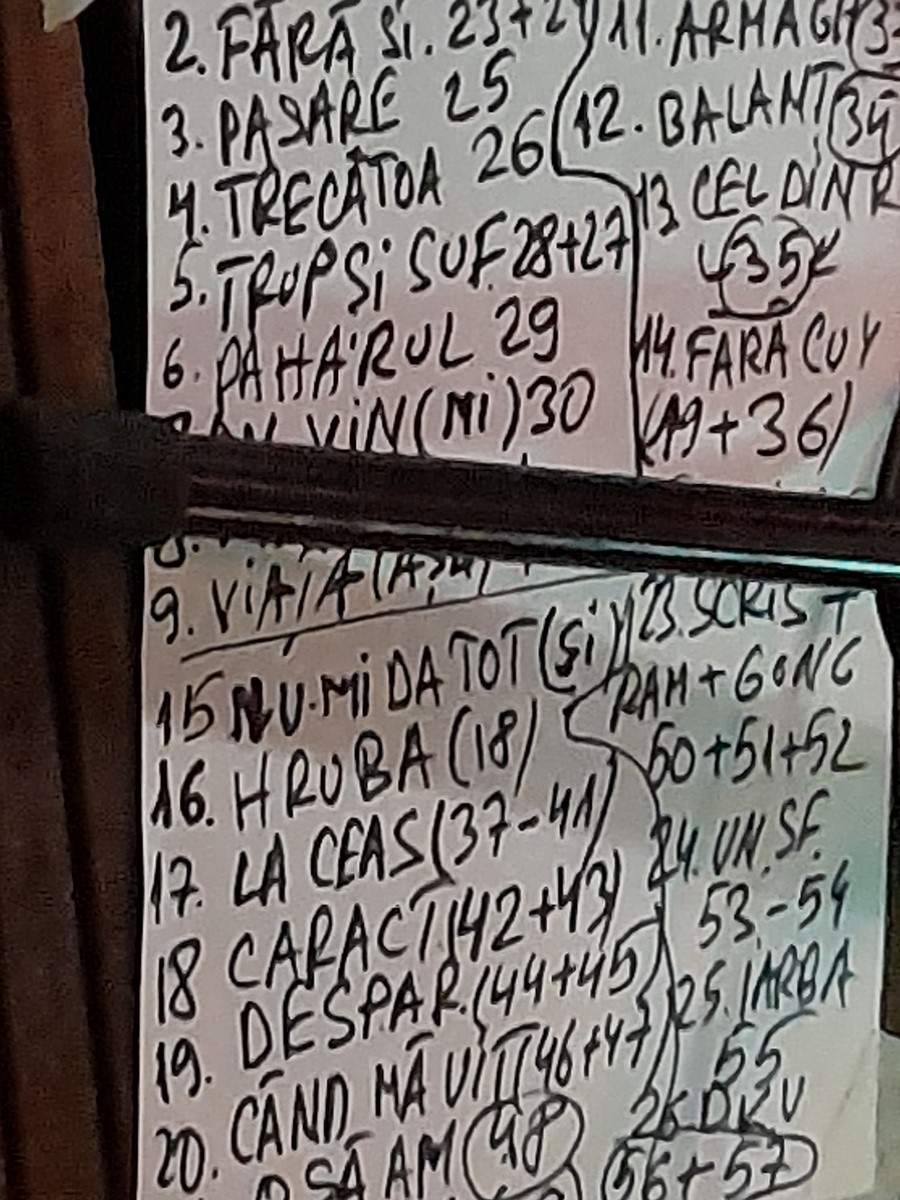 2. FĂRĂ ȘI. 23+24
3. PASĂRE 25
4. TRECĂTOA 26
5. TRUP ȘI SUF. 28+27
6. PAHARUL 29
VIN (MI) 30
11. ARMAGH
12. BALANT 34
13. CEL DIN R
35
14. FARA CUV
(19+36)
9. VIAȚA
15 NU-MI DA TOT (ȘI)
16. HRUBA (18)
17. LA CEAS (37-41)
18 CARACT (42+43)
19. DESPAR. (44+45)
20. CÂND MĂ UIT (46+47)
SĂ AM 48
23. SCRIS T
RAM + GONG
50+51+52
24. UN. SF.
53-54
25. IARBA
55
26 DRU
56+57